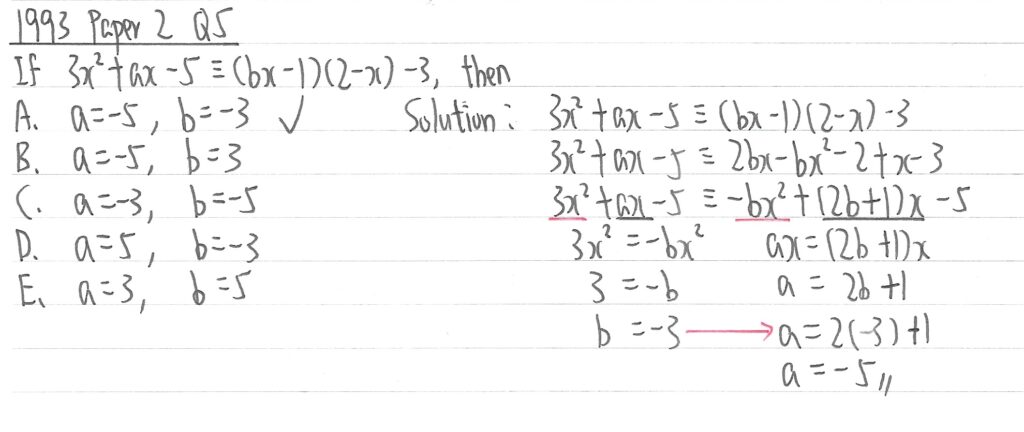 1993 Paper 2 Q5
If 3x²+ax-5≡(bx-1)(2-x)-3, then
A. a=-5, b=-3 ✓
B. a=-5, b=3
C. a=-3, b=-5
D. a=5, b=-3
E. a=3, b=5
Solution: 3x²+ax-5≡(bx-1)(2-x)-3
3x²+ax-5≡2bx-bx²-2+x-3
3x²+ax-5≡-bx²+(2b+1)x-5
3x²=-bx² ax=(2b+1)x
3=-b a=2b+1
b=-3 → a=2(-3)+1
a=-5//